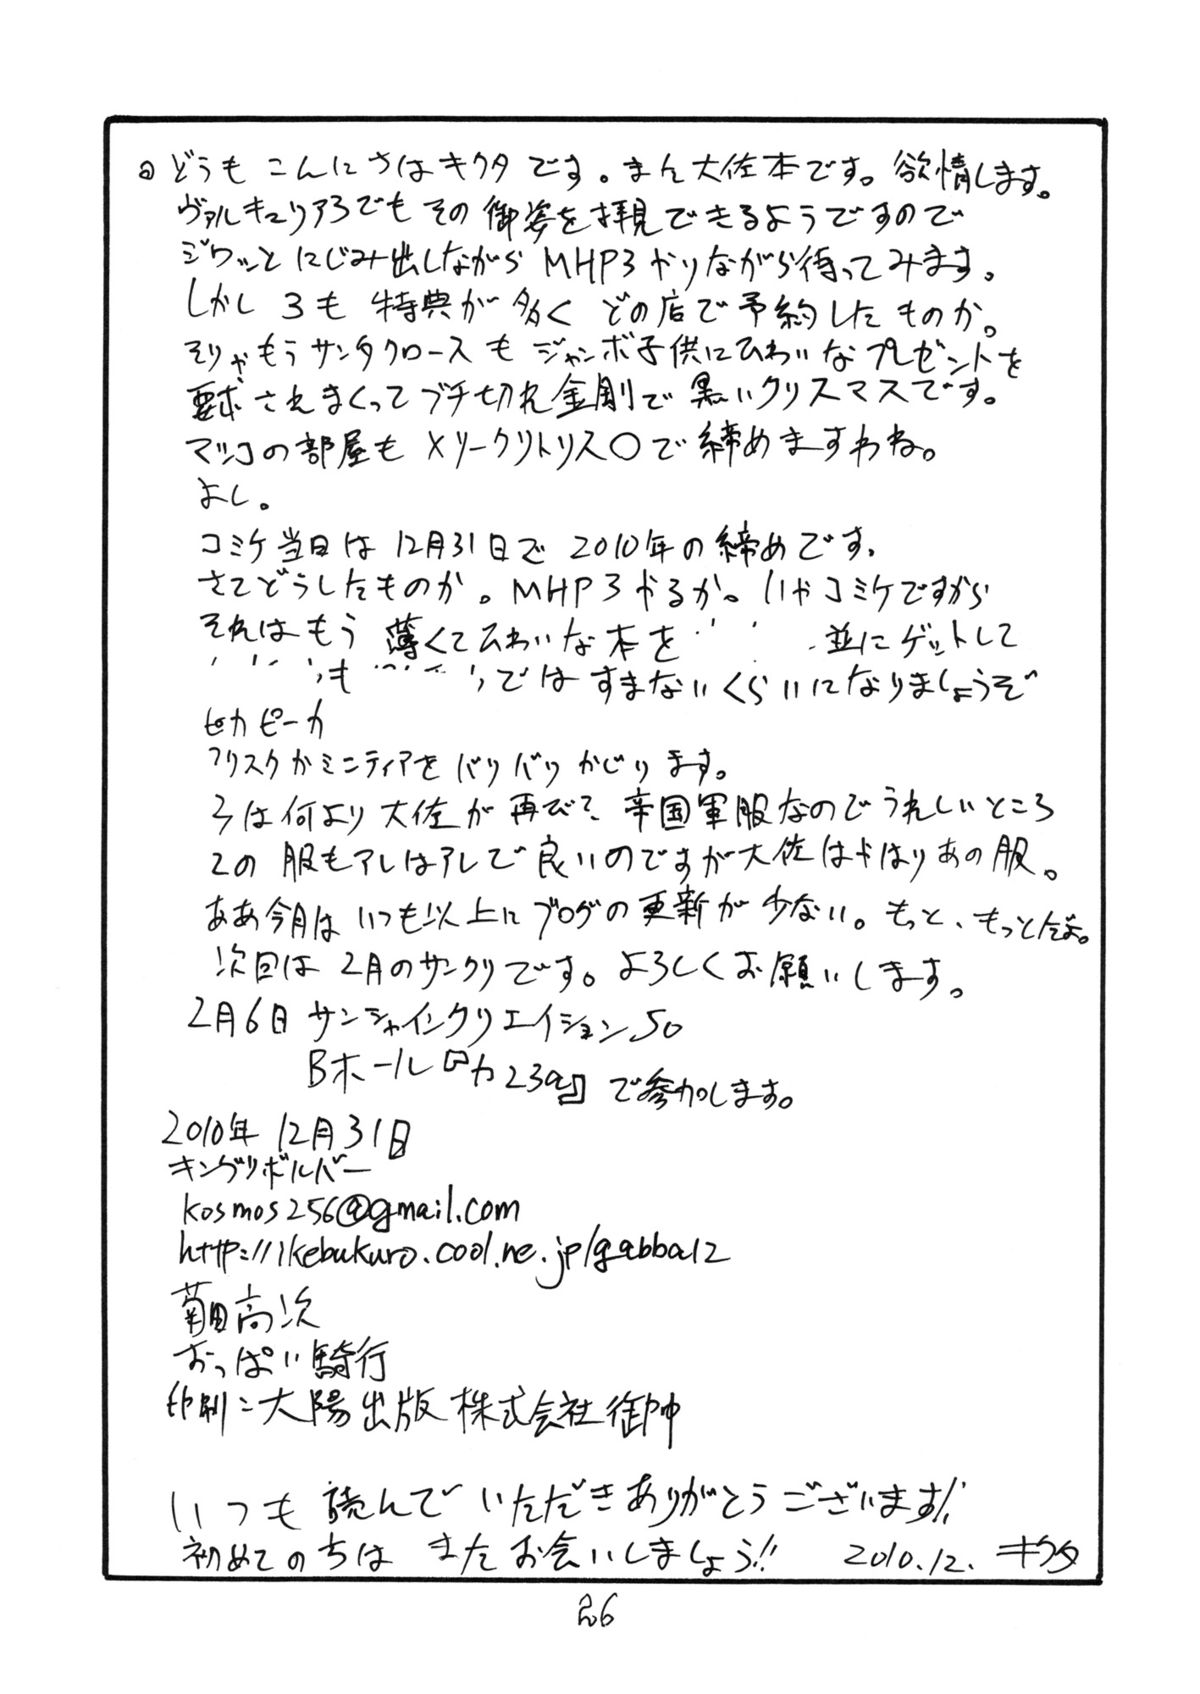 どうも こんにちはキクタです。まん大佐本です。欲情します。
ヴァルキュリア3でもその御姿を拝見できるようですので
ジワッとにじみ出しながら MHP3やりながら待ってみます。
しかし 3も 特典が多く どの店で予約したものか。
そりゃもうサンタクロースもジャンボ子供にひわいなプレゼントを
要求されまくってブチ切れ金剛で黒いクリスマスです。
マツコの部屋も メリークリトリス〇で締めますわね。
よし。
コミケ当日は12月31日で 2010年の締めです。
さてどうしたものか。MHP3やるか。いやコミケですから
それはもう 薄くてひわいな本を 並にゲットして
も ではすまないくらいになりましょうぞ
ピカピーカ
フリスクかミンティアをバリバリかじります。
3は何より大佐が再びで 帝国軍服なのでうれしいところ
2の服もアレはアレで良いのですが大佐はやはりあの服。
ああ今月はいつも以上にブログの更新が少ない。もっと、もっとだよ。
次回は2月のサンクリです。よろしくお願いします。
2月6日 サンシャインクリエイション50
Bホール『カ23a』で参加します。
2010年12月31日
キングリボルバー
kosmos256@gmail.com
http://ikebukuro.cool.ne.jp/gabba12
菊田高次
おっぱい騎行
印刷:大陽出版株式会社御中
いつも読んでいただきありがとうございます!!
初めてのちは またお会いしましょう!! 2010.12. キクタ
26